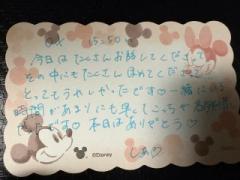 15:50
今日はたくさんお話してくださって
その中にもたくさんほめてくださって
とってもうれしかったです♡ 一緒にいる
時間があまりにも早くてこっちが
でした♡ 本日はありがとう♡
©Disney